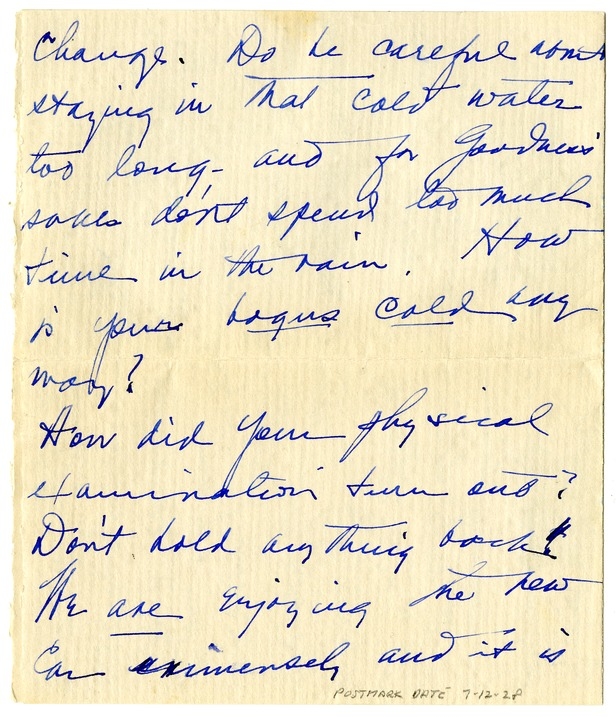 change. Do be careful about
staying in that cold water
too long - and for Goodness'
sakes don't spend too much
time in the rain. How
is your bogus cold any
way?
How did your physical
examination turn out?
Don't hold any thing back!
We are enjoying the new
Car immensely and it is
POSTMARK DATE 7-12-28